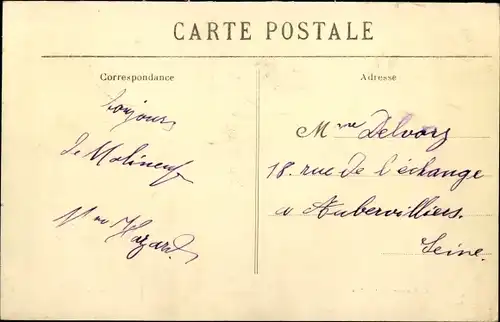 CARTE POSTALE
Correspondance
bonjours
de Molineuf
Mme Hazard.
Adresse
Mme Delvorg
18. rue de l'échange
a Aubervilliers.
Seine.